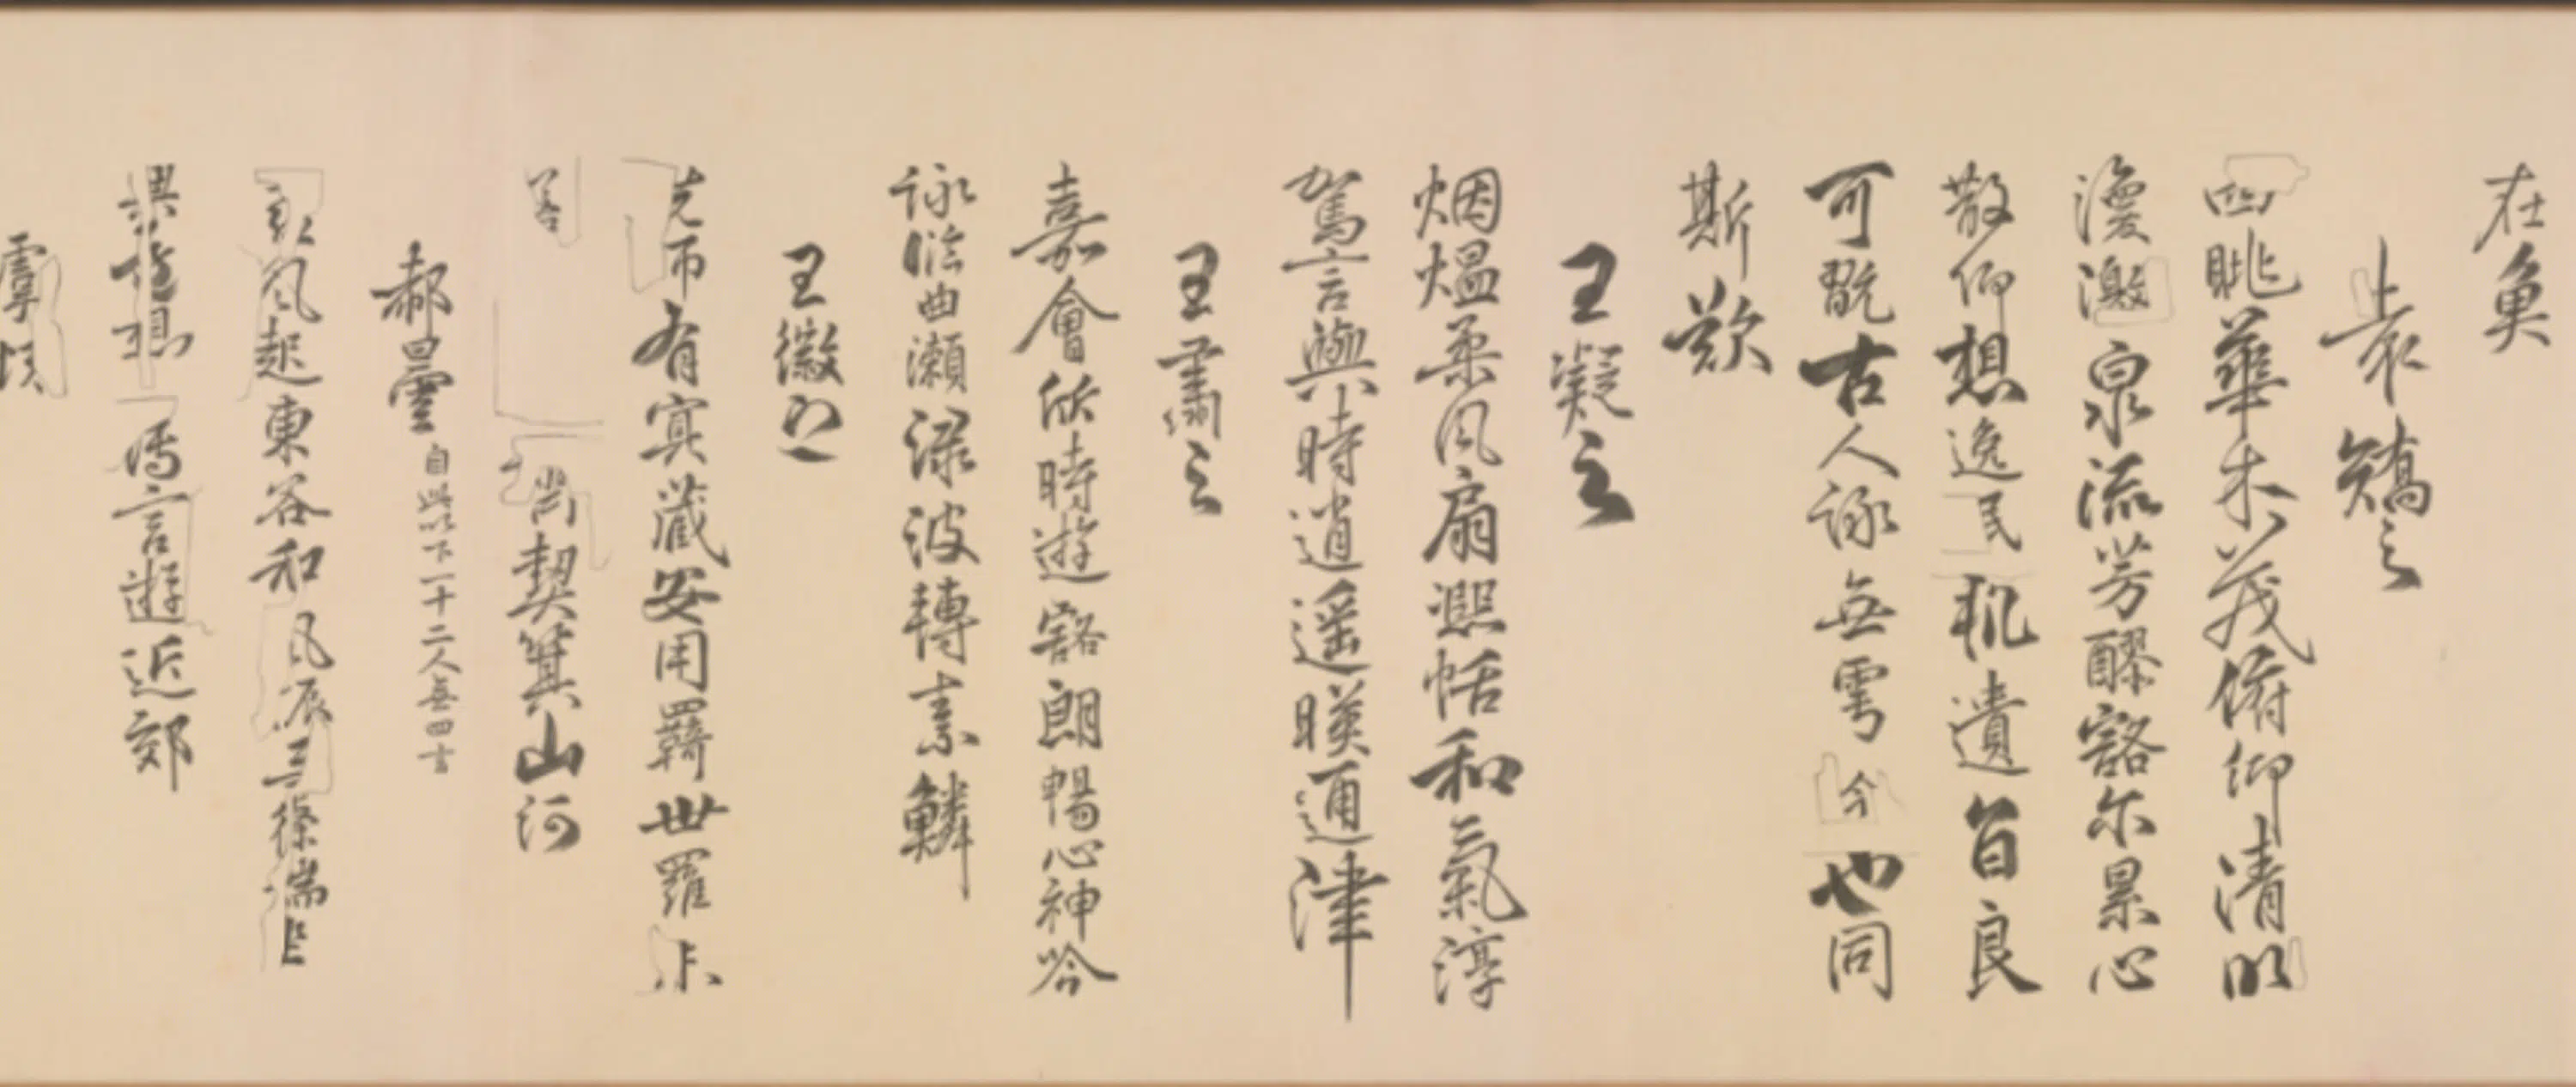 在魚
袁矯之
四眺華木茂俯仰清明
激泉流芳醪豁尔累心
散仰想逸民軌遺旨良
可翫古人詠無雩今也同
斯歎
王凝之
烟煴柔風扇熙恬和氣淳
駕言興時遊逍遥暎通津
王肅之
嘉會欣時遊豁朗暢心神吟
詠臨曲瀬渌波轉素鱗
王徽之
先師有冥藏安用羈世羅
尚契箕山河
郝曇 自此以下一十二人無四言
風起東谷和
言遊近郊